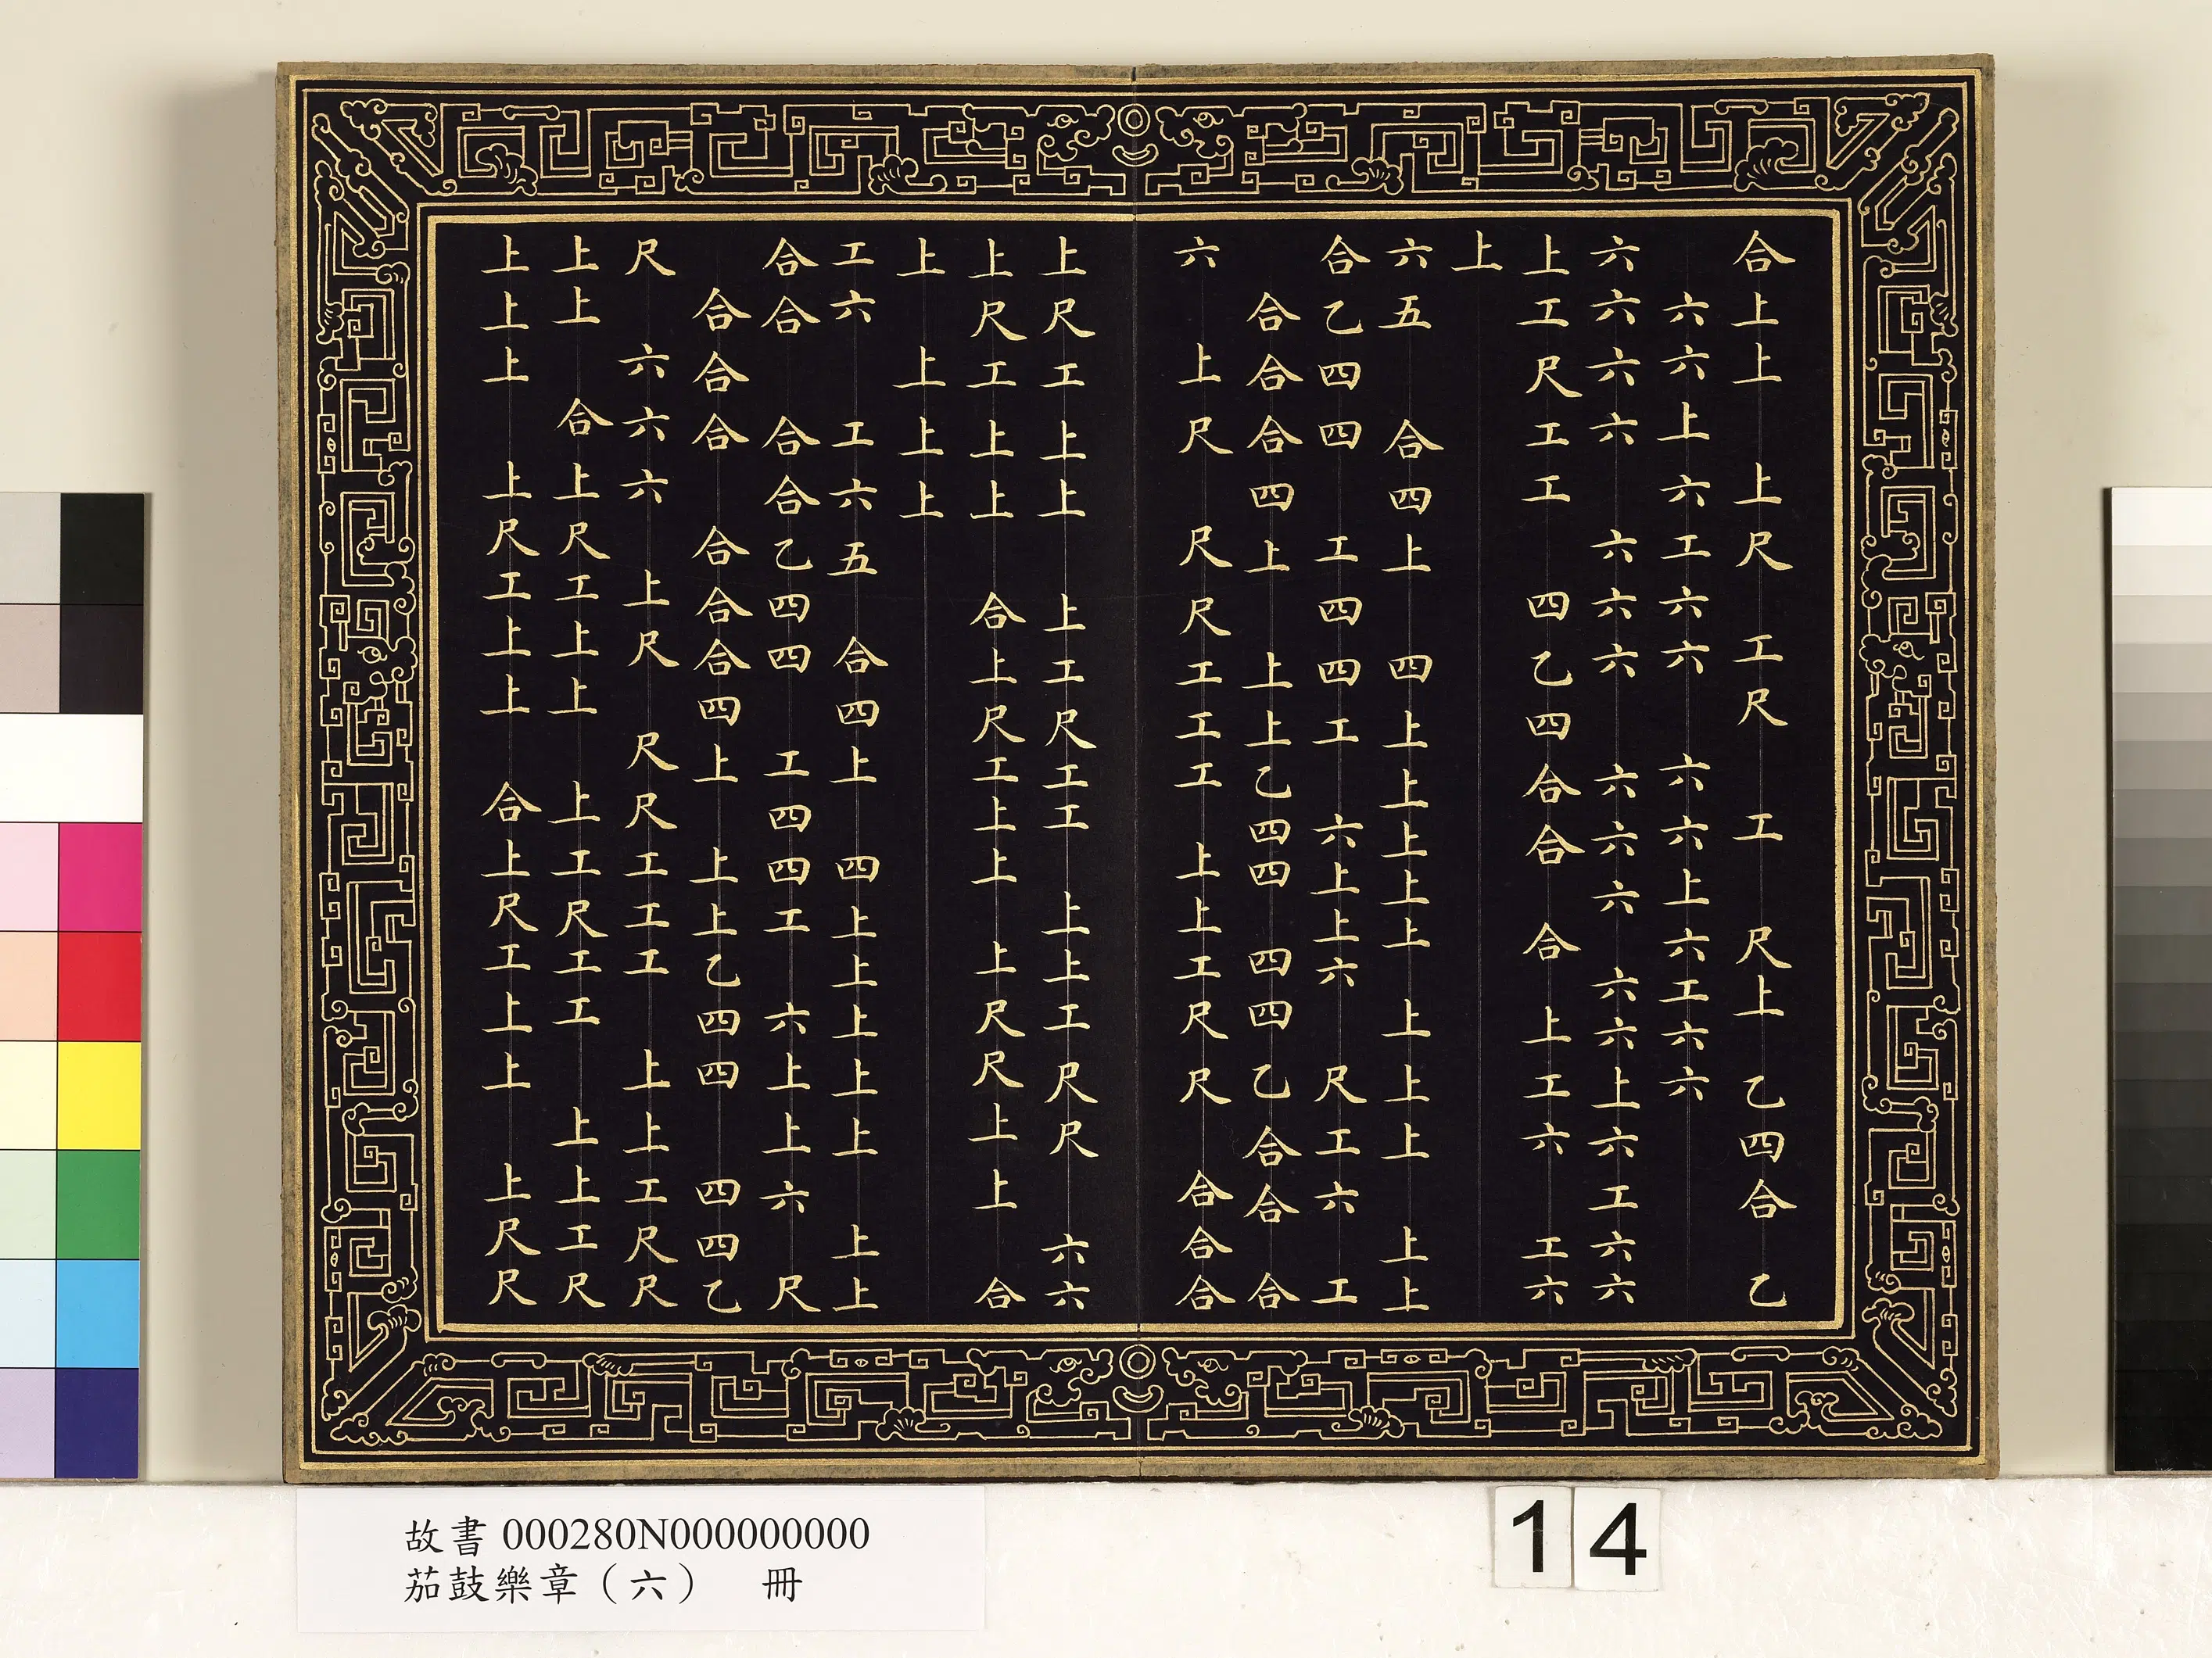 合上上　上尺　工尺　工　尺上　乙四合　乙
六六上六工六六　六六上六工六六
六六六六　六六六　六六六　六六上六工六六
上工尺工工　四乙四合合　合　上工六　工六
上
六五　合四上　四上上上上上　上上上　上上
合乙四四　工四四工　六上上六　尺工六　工
合合合四上　上上乙四四　四四乙合合　合
六　上尺　尺尺工工工　上上工尺尺　合合合
上尺工上上　上工尺工工　上上工尺尺　六六
上尺工上上　合上尺工上上　上尺尺上上　合
上　上上上
工六　工六五　合四上　四上上上上上　上上
合合　合合乙四四　工四四工　六上上六　尺
合合合　合合合四上　上上乙四四　四四乙
尺　六六六　上尺　尺尺工工工　上上工尺尺
上上　合上尺工上上　上工尺工工　上上工尺
上上上　上尺工上上　合上尺工上上　上尺尺
故書 000280N000000000
茄鼓樂章（六）　冊
14